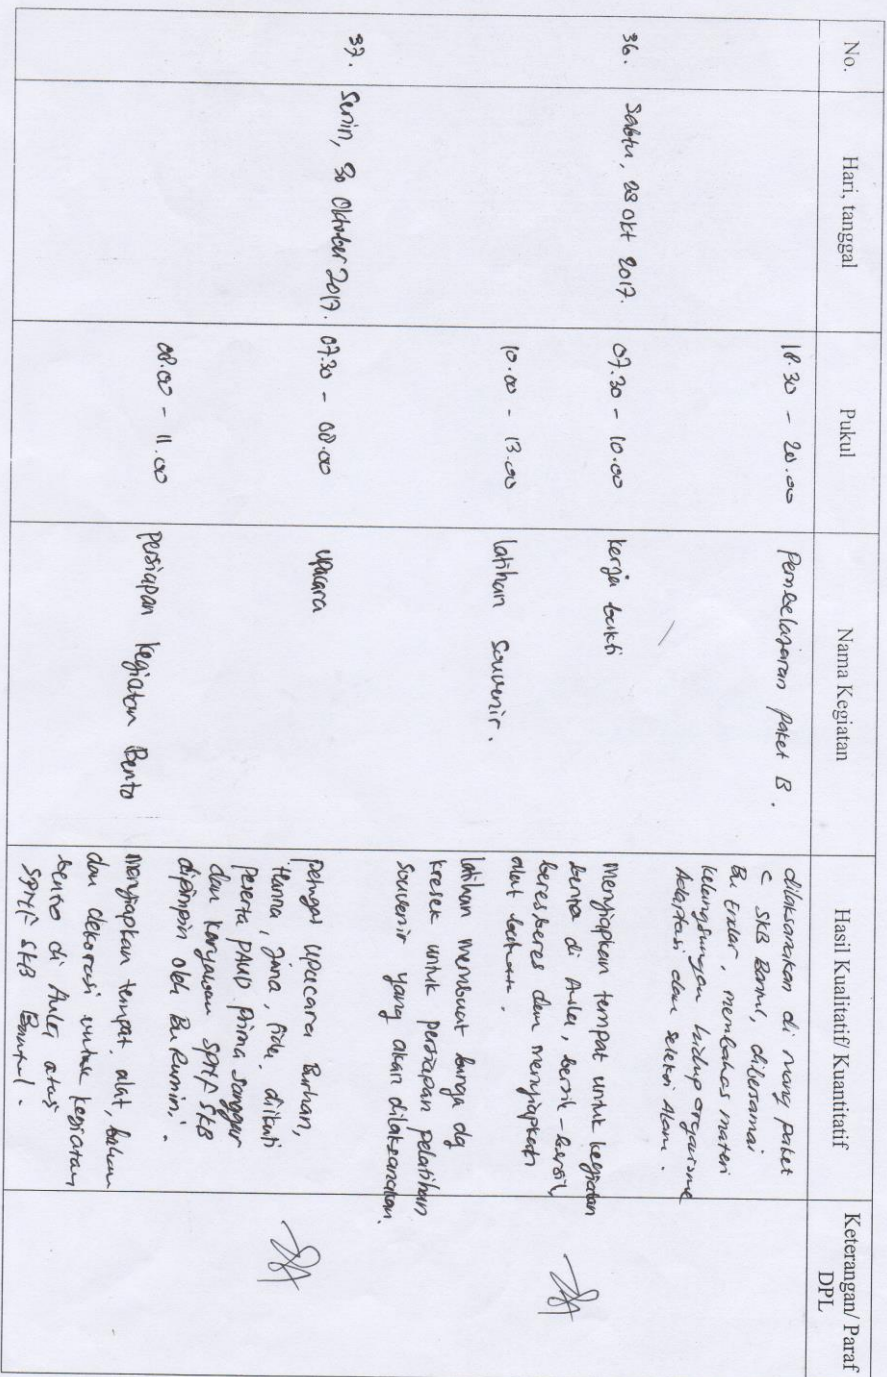 No. Hari, tanggal Pukul Nama Kegiatan Hasil Kualitatif/ Kuantitatif Keterangan/ Paraf DPL
18.30 - 20.00 Pembelajaran Paket B.
dilaksanakan di ruang paket
C SKB Bantul, dibersamai
Bu Endar, membahas materi
kelangsungan hidup organisme
Adaptasi dan seleksi Alam.
36. Sabtu, 28 Okt 2017. 07.30 - 10.00 kerja bakti
Menyiapkan tempat untuk kegiatan
bento di Aula, bersih-bersih,
beres beres dan menyiapkan
alat bahan.
10.00 - 13.00 latihan souvenir.
latihan membuat bunga dg
kresek untuk persiapan pelatihan
souvenir yang akan dilaksanakan.
37. Senin, 30 Oktober 2017. 07.30 - 08.00 upacara
petugas upacara Burhan,
Hanna, Fida, diikuti
peserta PAUD Prima Sanggar
dan karyawan SPNF SKB
dipimpin oleh Bu Rumin.
08.00 - 11.00 persiapan kegiatan Bento
Menyiapkan tempat, alat, bahan
dan dekorasi untuk kegiatan
bento di Aula atas
SPNF SKB Bantul.